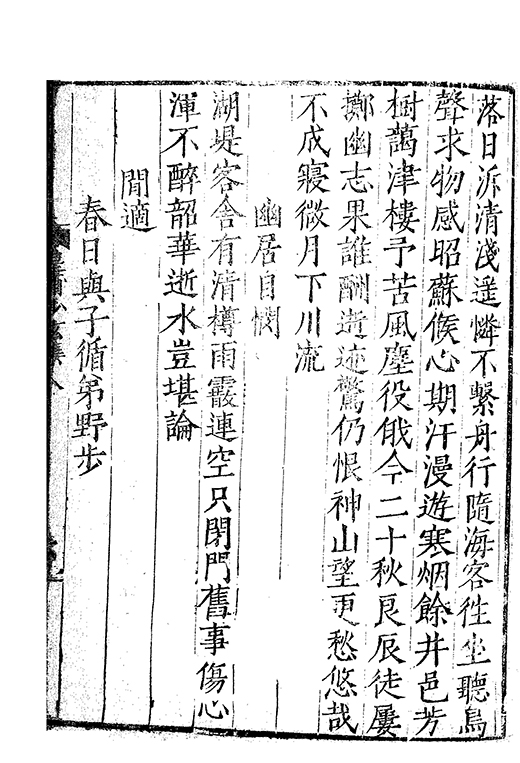 落日泝清淺遥憐不繫舟行隨海客徃坐聽鳥
聲求物感昭蘇候心期汗漫遊寒烟餘井邑芳
樹藹津樓予苦風塵役俄今二十秋良辰徒屢
擲幽志果誰酬遺迹驚仍恨神山望更愁悠哉
不成寢微月下川流
幽居自憫
湖堤客舍有清樽雨霰連空只閉門舊事傷心
渾不醉韶華逝水豈堪論
閒適
春日與子循弟野步